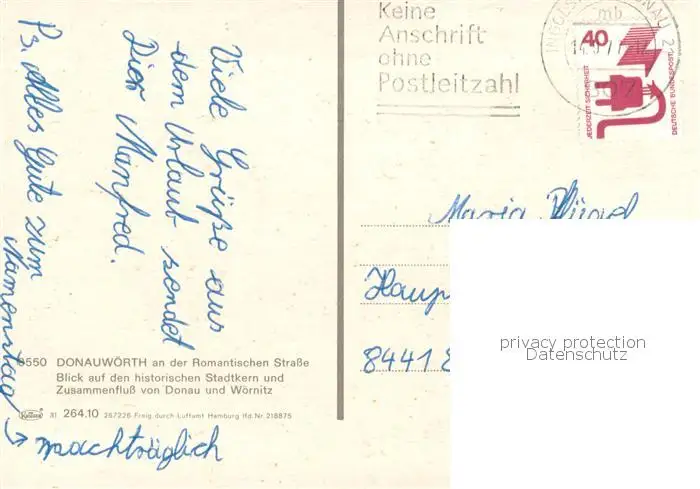 Viele Grüße aus
dem Urlaub sendet
Dier Manfred.
Ps. Alles Gute zum
Namenstag
→ nachträglich
8550 DONAUWÖRTH an der Romantischen Straße
Blick auf den historischen Stadtkern und
Zusammenfluß von Donau und Wörnitz
31 264.10 267226 Freig. durch Luftamt Hamburg lfd. Nr. 218875
Keine
Anschrift
ohne
Postleitzahl
mb
40
JEDERZEIT SICHERHEIT
DEUTSCHE BUNDESPOST
Maria
Haup
8441
privacy protection
Datenschutz